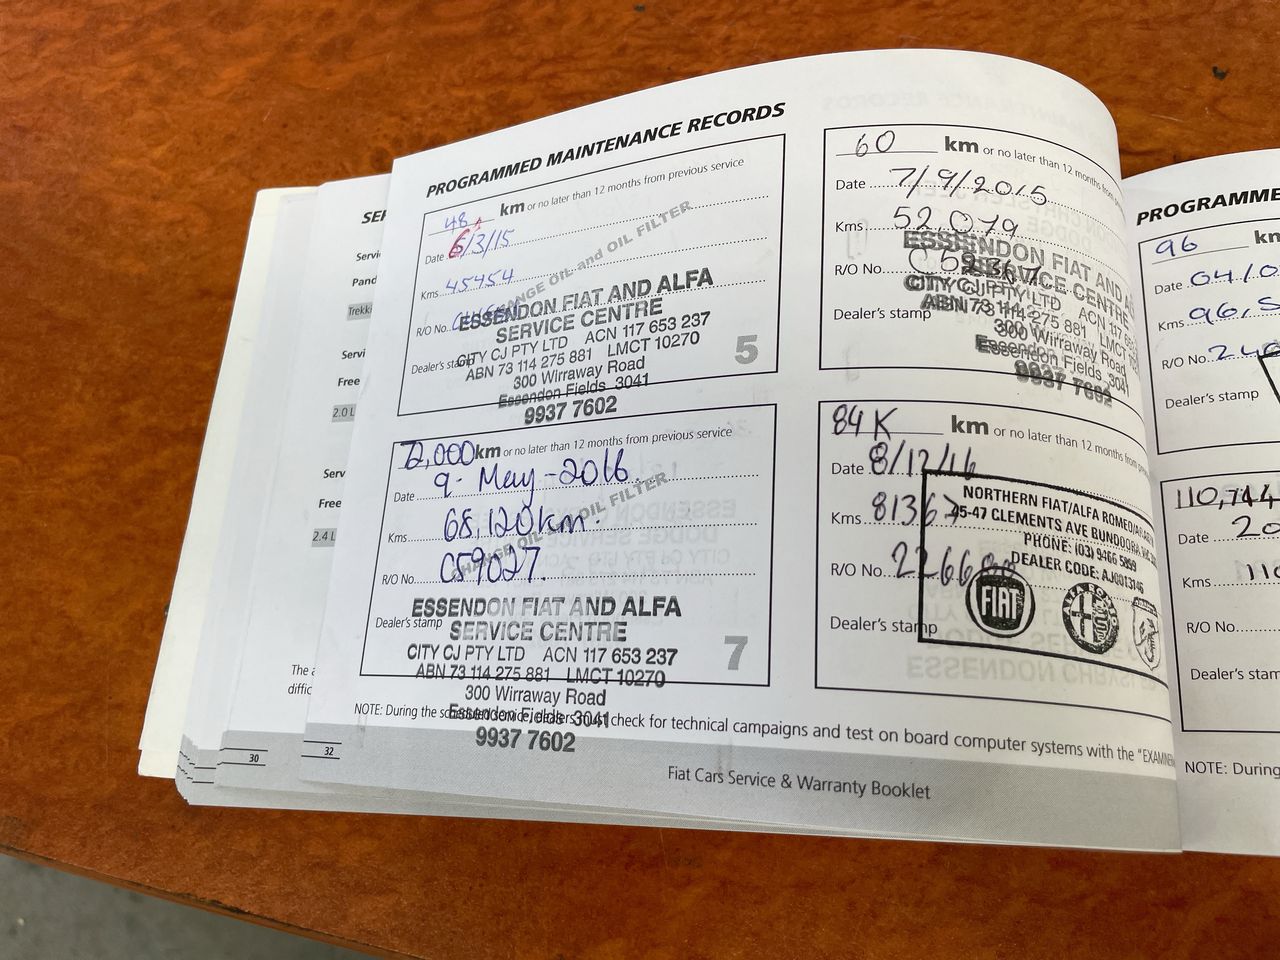 PROGRAMMED MAINTENANCE RECORDS
48 km or no later than 12 months from previous service
Date 6/3/15
Kms 45454
R/O No.
CHANGE OIL and OIL FILTER
Dealer's stamp
ESSENDON FIAT AND ALFA
SERVICE CENTRE
CITY CJ PTY LTD ACN 117 653 237
ABN 73 114 275 881 LMCT 10270
300 Wirraway Road
Essendon Fields 3041
9937 7602
5
60 km or no later than 12 months from
Date 7/9/2015
Kms 52079
R/O No.
Dealer's stamp
ESSENDON FIAT AND
SERVICE CENTRE
CITY CJ PTY LTD ACN 117
ABN 73 114 275 881 LMCT
300 Wirraway Road
Essendon Fields 3041
9937 7602
72,000 km or no later than 12 months from previous service
Date 9-May-2016
Kms 68,120km.
R/O No. C59027.
CHANGE OIL OIL FILTER
Dealer's stamp
ESSENDON FIAT AND ALFA
SERVICE CENTRE
CITY CJ PTY LTD ACN 117 653 237
ABN 73 114 275 881 LMCT 10270
300 Wirraway Road
Essendon Fields 3041
9937 7602
7
84K km or no later than 12 months from previous
Date 8/12/16
Kms 81367
R/O No.
Dealer's stamp
NORTHERN FIAT/ALFA ROMEO/
45-47 CLEMENTS AVE BUNDOORA
PHONE: (03) 9466 5899
DEALER CODE: AJ0013746
FIAT
ALFA ROMEO
NOTE: During the scheduled service, dealers must check for technical campaigns and test on board computer systems with the "EXAMINER
Fiat Cars Service & Warranty Booklet
30
32
SER
Servi
Pand
Trekki
Servi
Free
2.0 L
Serv
Free
2.4 L
The
diffic
PROGRAMME
96 km
Date 04/0
Kms 96,5
R/O No. 240
Dealer's stamp
110,744
Date 20
Kms 110
R/O No.
Dealer's stam
NOTE: During